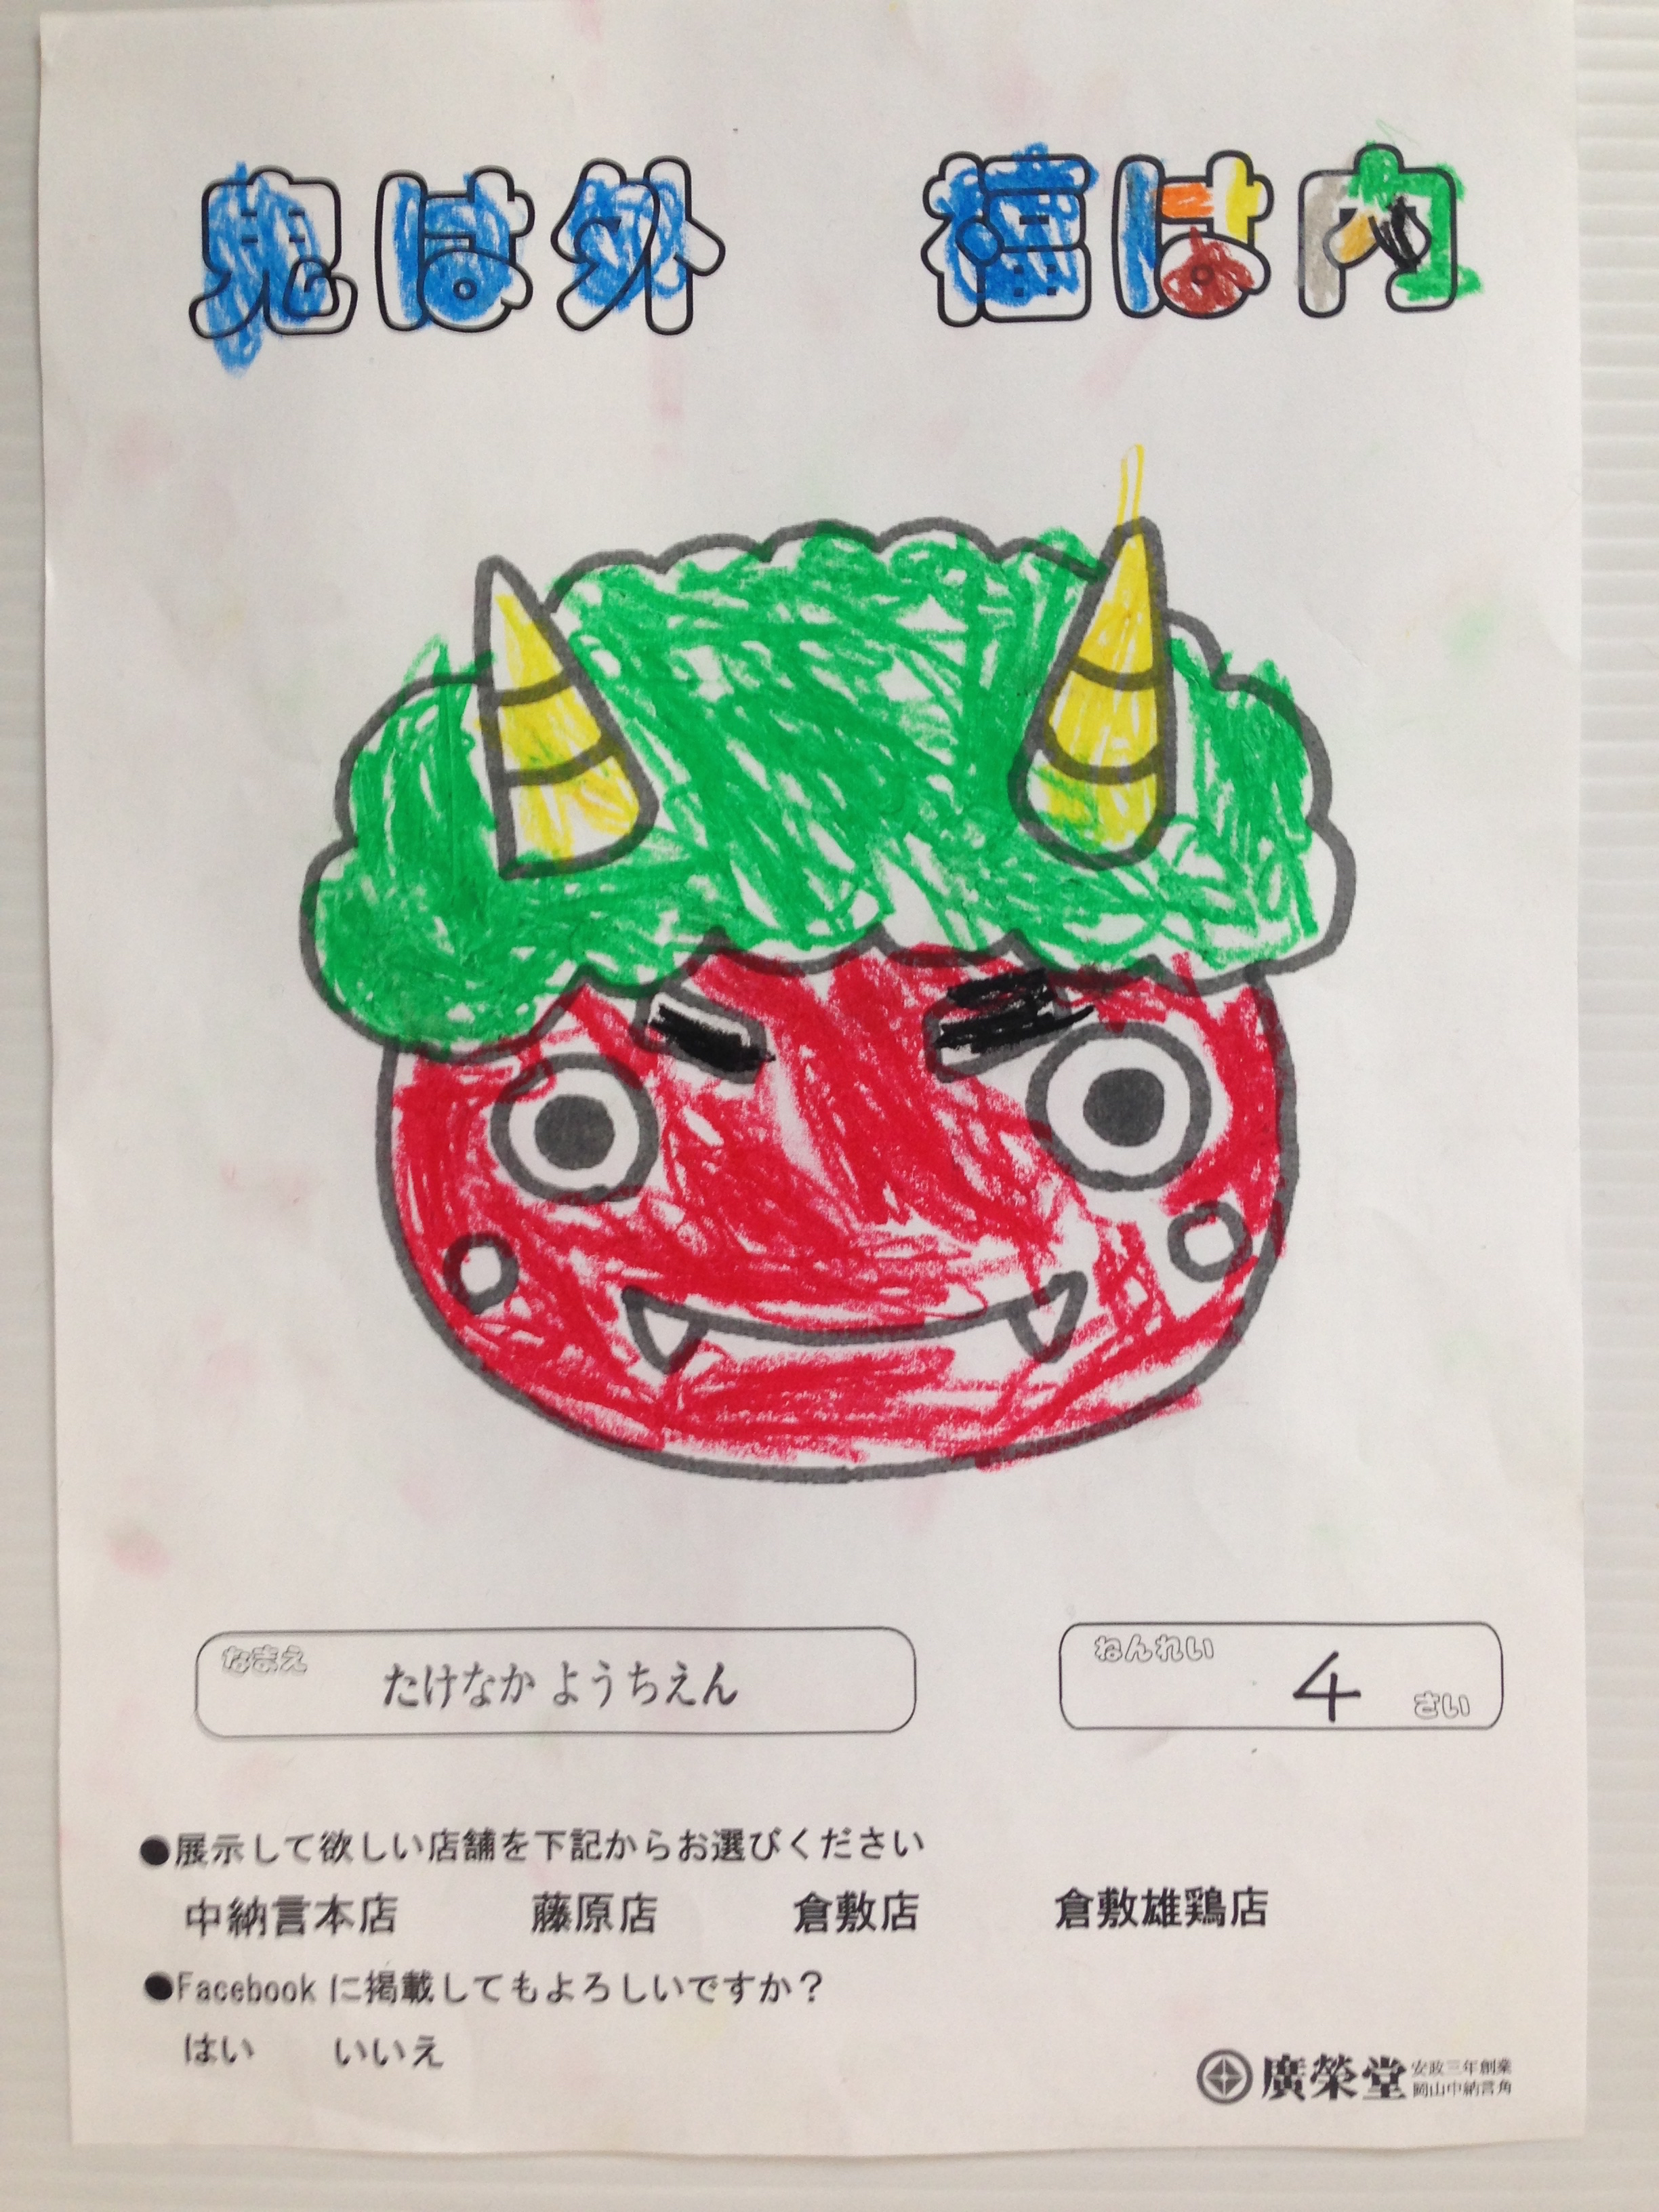 鬼は外 福は内
なまえ たけなか ようちえん
ねんれい 4 さい
●展示して欲しい店舗を下記からお選びください
中納言本店 藤原店 倉敷店 倉敷雄鶏店
●Facebookに掲載してもよろしいですか？
はい いいえ
廣榮堂 安政三年創業
岡山中納言角